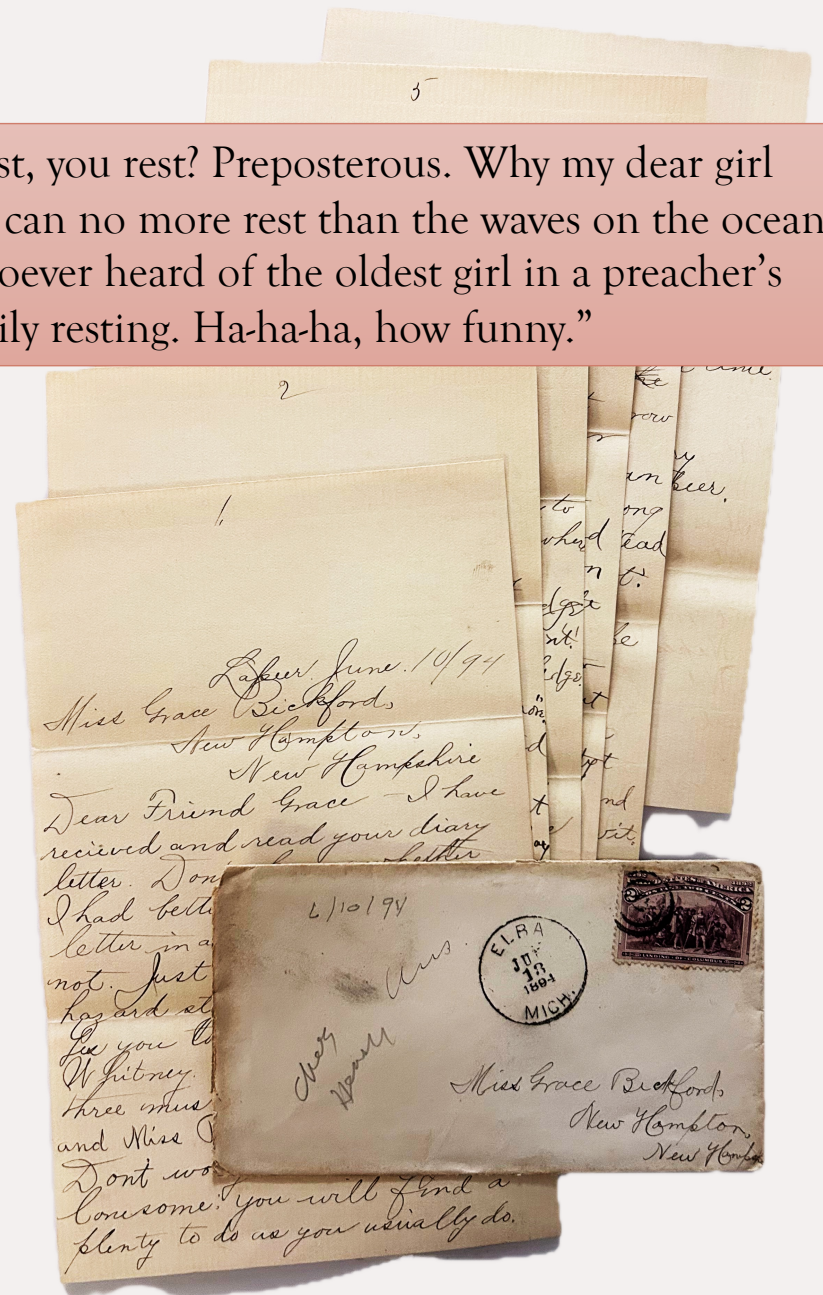 5
st, you rest? Preposterous. Why my dear girl
can no more rest than the waves on the ocean
oever heard of the oldest girl in a preacher's
ily resting. Ha-ha-ha, how funny.”
2
1,
Lapeer. June. 10/94
Miss Grace Bickford,
New Hampton,
New Hampshire
Dear Friend Grace – I have
recieved and read your diary
letter. Don
I had bett
letter in a
not. Just
hazard st
you
Whitney.
three mus
and Miss
Don't wo
lonesome: you will find a
plenty to do as you usually do.
row
an beer.
to ong
when ead
n t.
be
nd
vit.
6/10/94
Ans.
ELBA
13
1894
MICH.
UNITED STATES OF AMERICA
2 2
LANDING OF COLUMBUS
Miss Grace Bickford,
New Hampton,
New Hamp